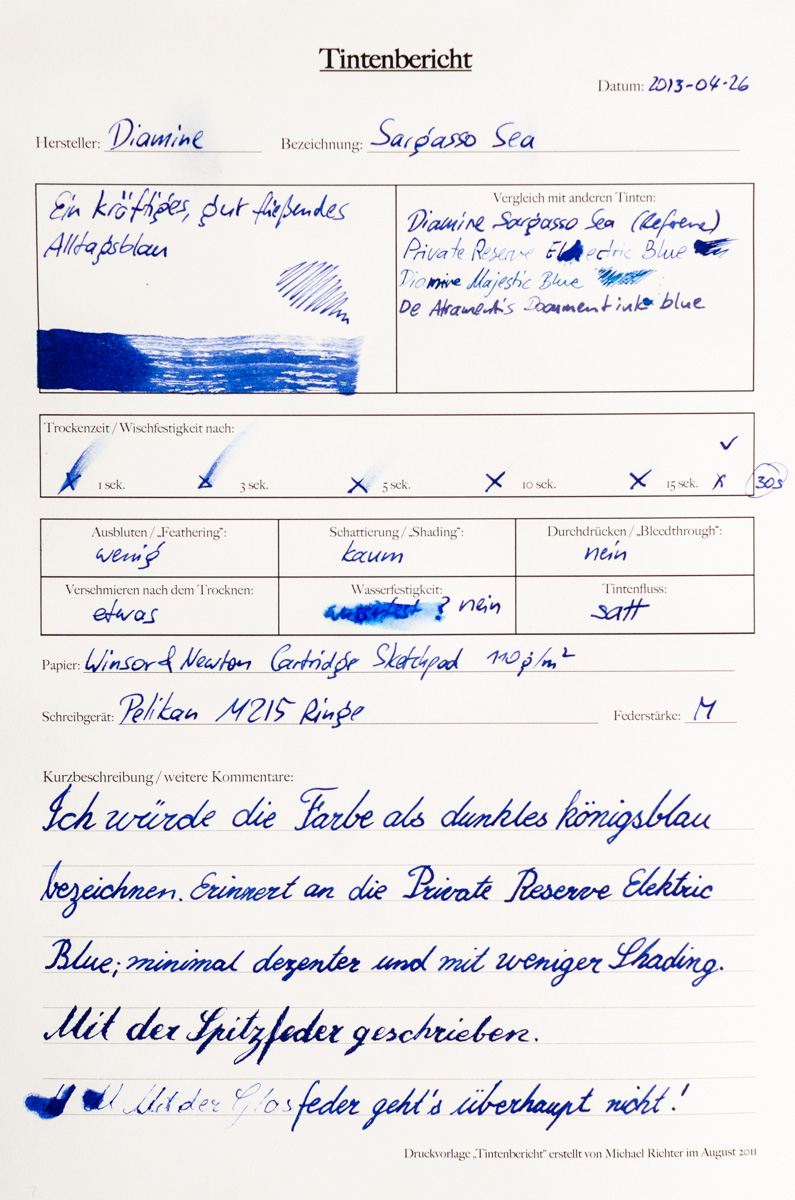 Tintenbericht
Datum: 2013-04-26
Hersteller: Diamine Bezeichnung: Sargasso Sea
Ein kräftiges, gut fließendes
Alltagsblau
Vergleich mit anderen Tinten:
Diamine Sargasso Sea (Referenz)
Private Reserve Electric Blue
Diamine Majestic Blue
De Atramentis Document ink blue
Trockenzeit / Wischfestigkeit nach:
1 sek. 3 sek. 5 sek. 10 sek. 15 sek. 30s
Ausbluten / „Feathering": Schattierung / „Shading": Durchdrücken / „Bleedthrough":
wenig kaum nein
Verschmieren nach dem Trocknen: Wasserfestigkeit: Tintenfluss:
etwas wasserfest ? nein satt
Papier: Winsor & Newton Cartridge Sketchpad 110 g/m²
Schreibgerät: Pelikan M215 Ringe Federstärke: M
Kurzbeschreibung / weitere Kommentare:
Ich würde die Farbe als dunkles königsblau
bezeichnen. Erinnert an die Private Reserve Elektric
Blue; minimal dezenter und mit weniger Shading.
Mit der Spitzfeder geschrieben.
Mit der Glasfeder geht's überhaupt nicht!
Druckvorlage „Tintenbericht" erstellt von Michael Richter im August 2011